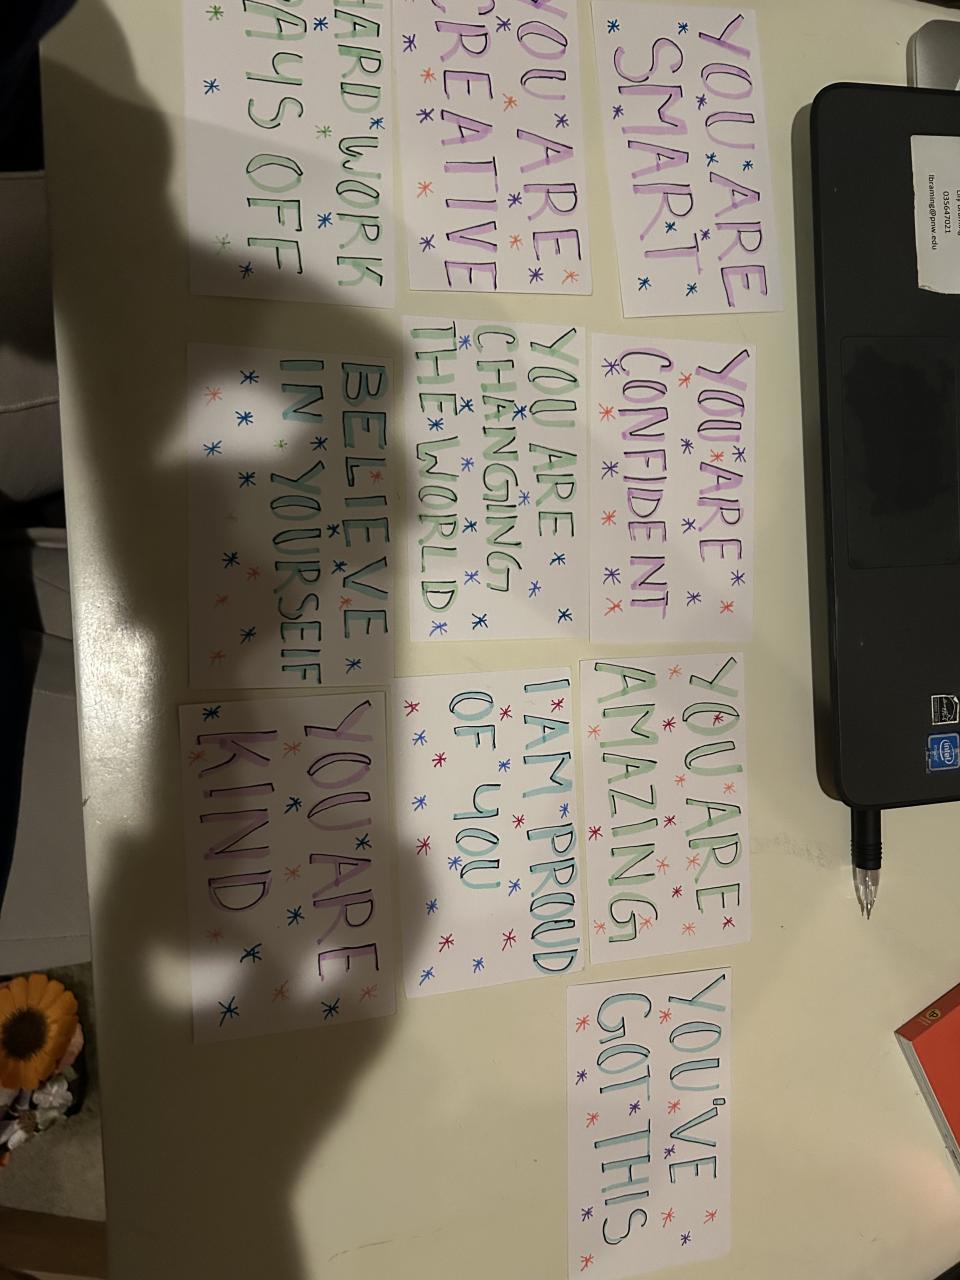 YOU ARE
SMART
YOU ARE
CONFIDENT
YOU ARE
AMAZING
YOU'VE
GOT THIS
YOU ARE
CREATIVE
YOU ARE
CHANGING
THE WORLD
I AM PROUD
OF YOU
HARD WORK
PAYS OFF
BELIEVE
IN YOURSELF
YOU ARE
KIND
035647021
lbraming@pnw.edu
intel